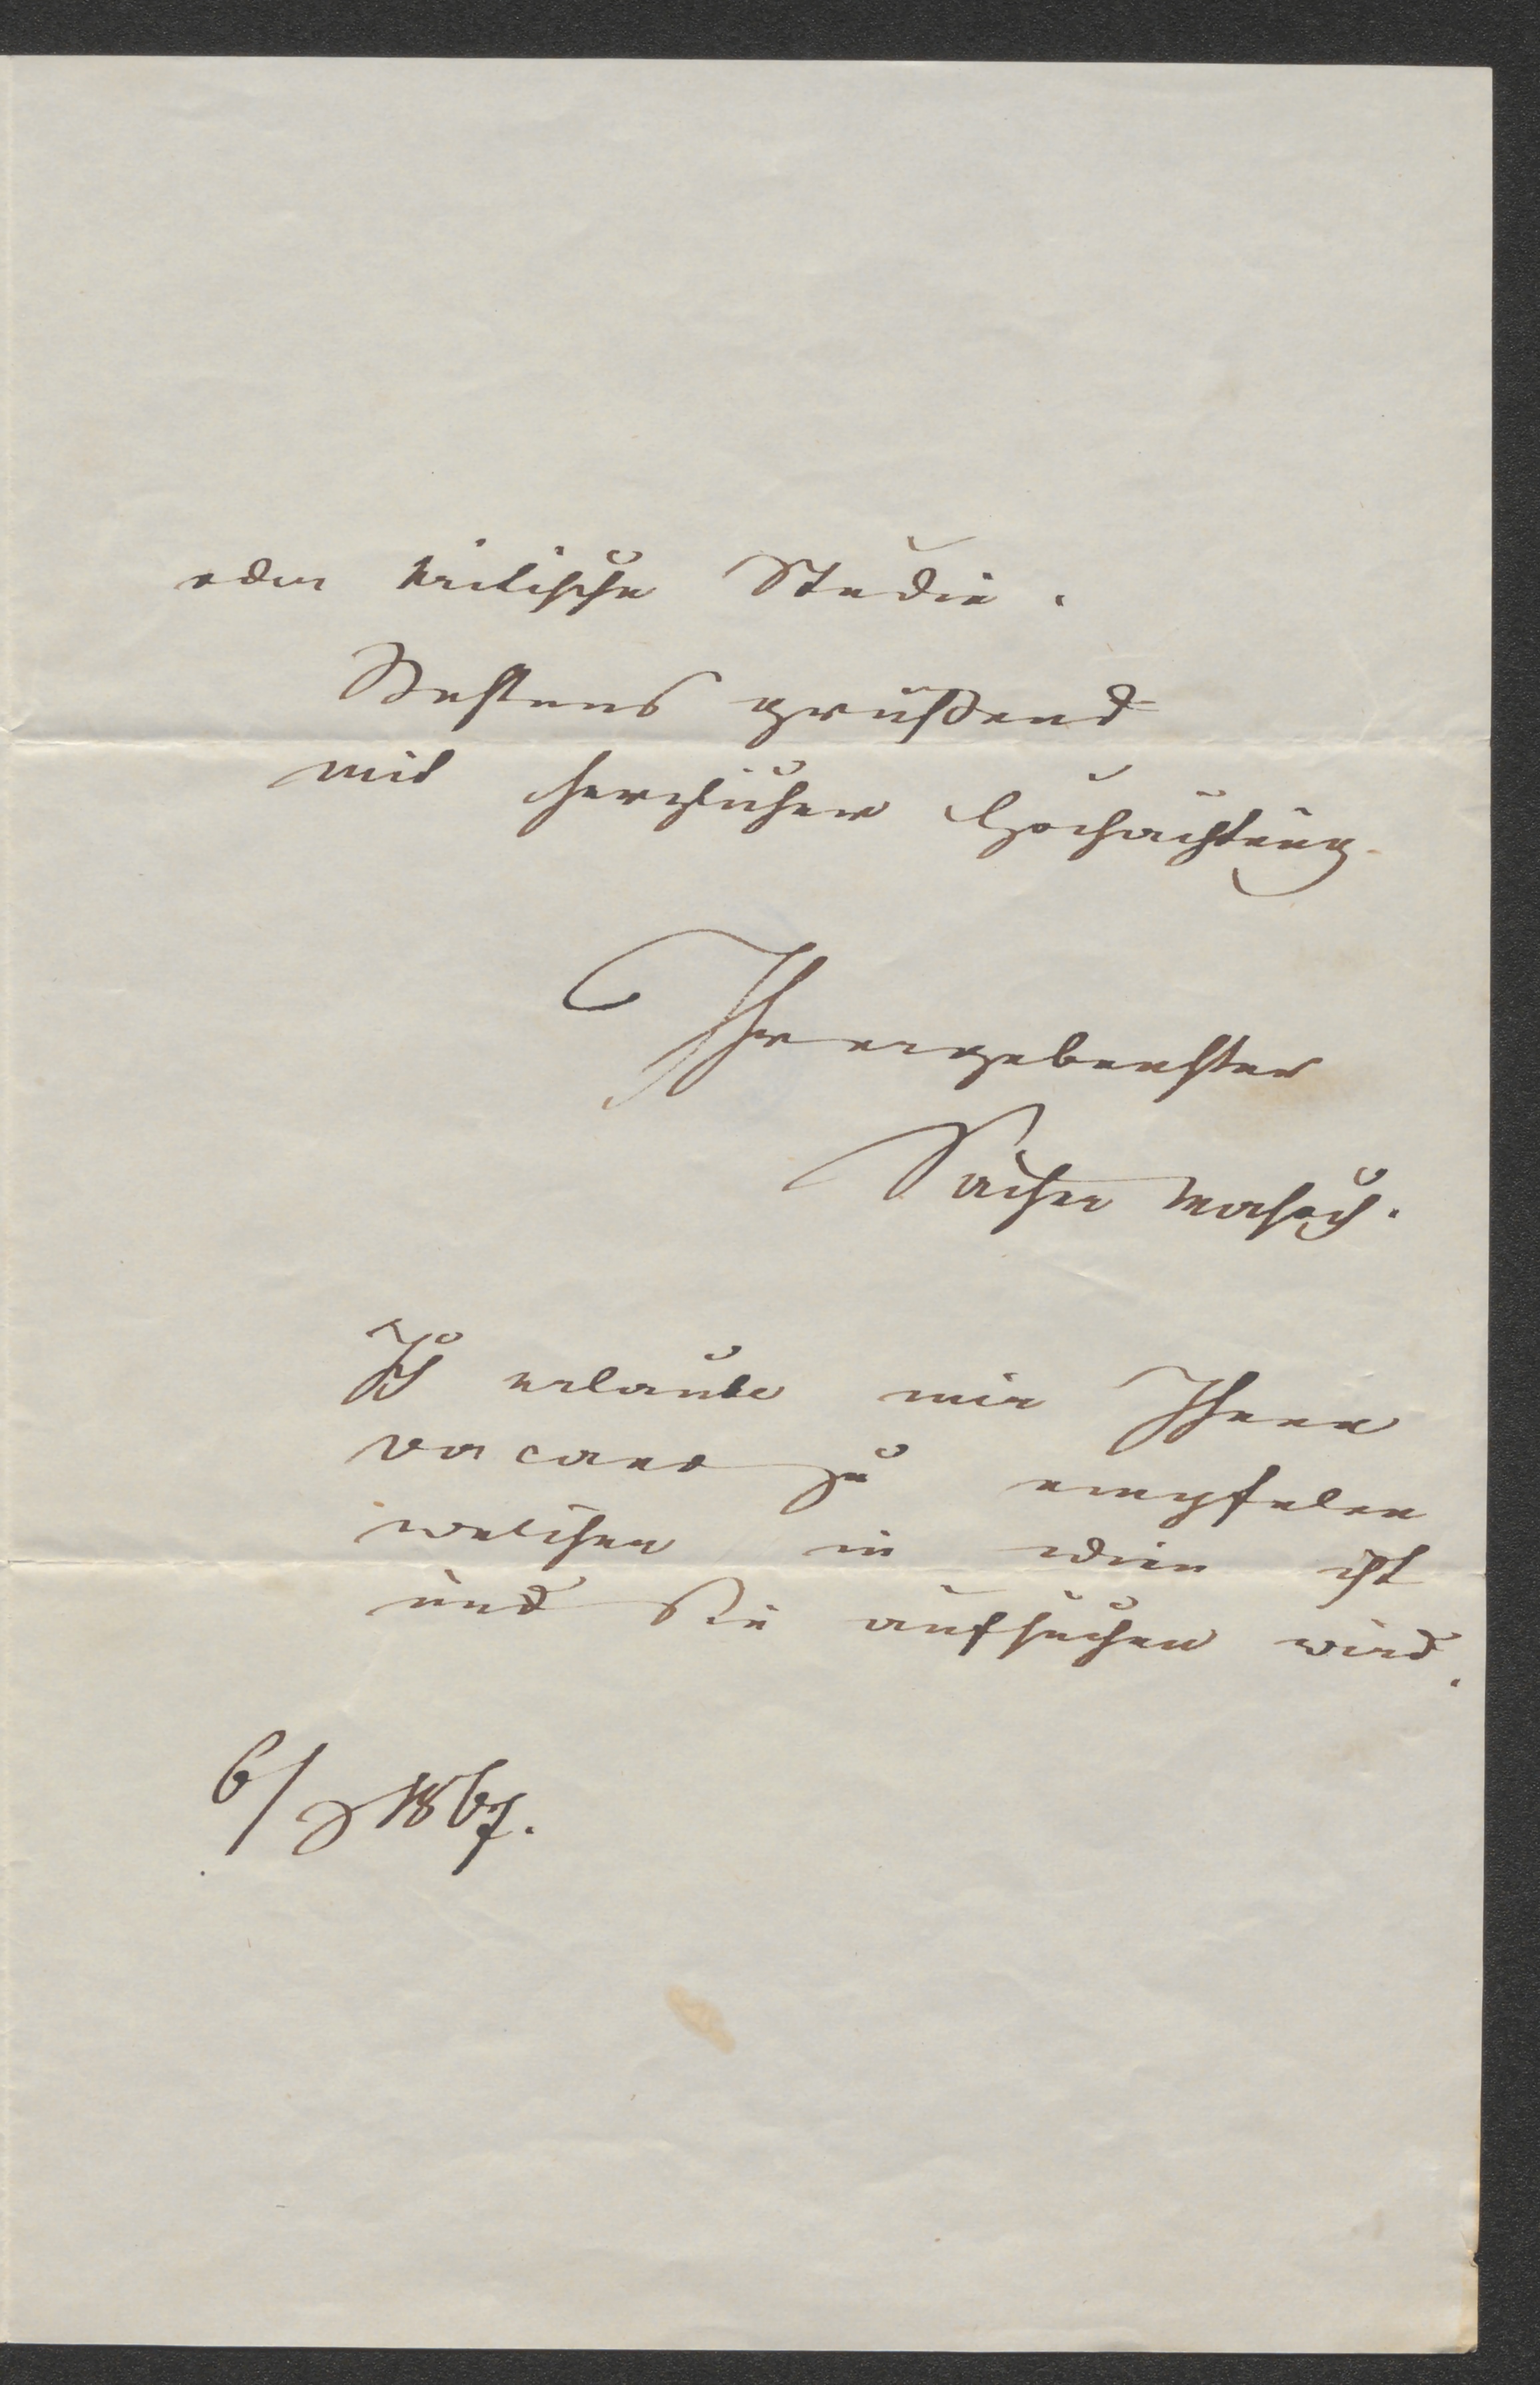 oder kritische Studie.
Bestens grüßend
mit herzlicher Hochachtung
Ihr ergebenster
Sacher Masoch.
Ich erlaube mir Ihnen
Vacano zu empfelen
welcher in Wien ist
und Sie aufsuchen wird.
6/ 1867.